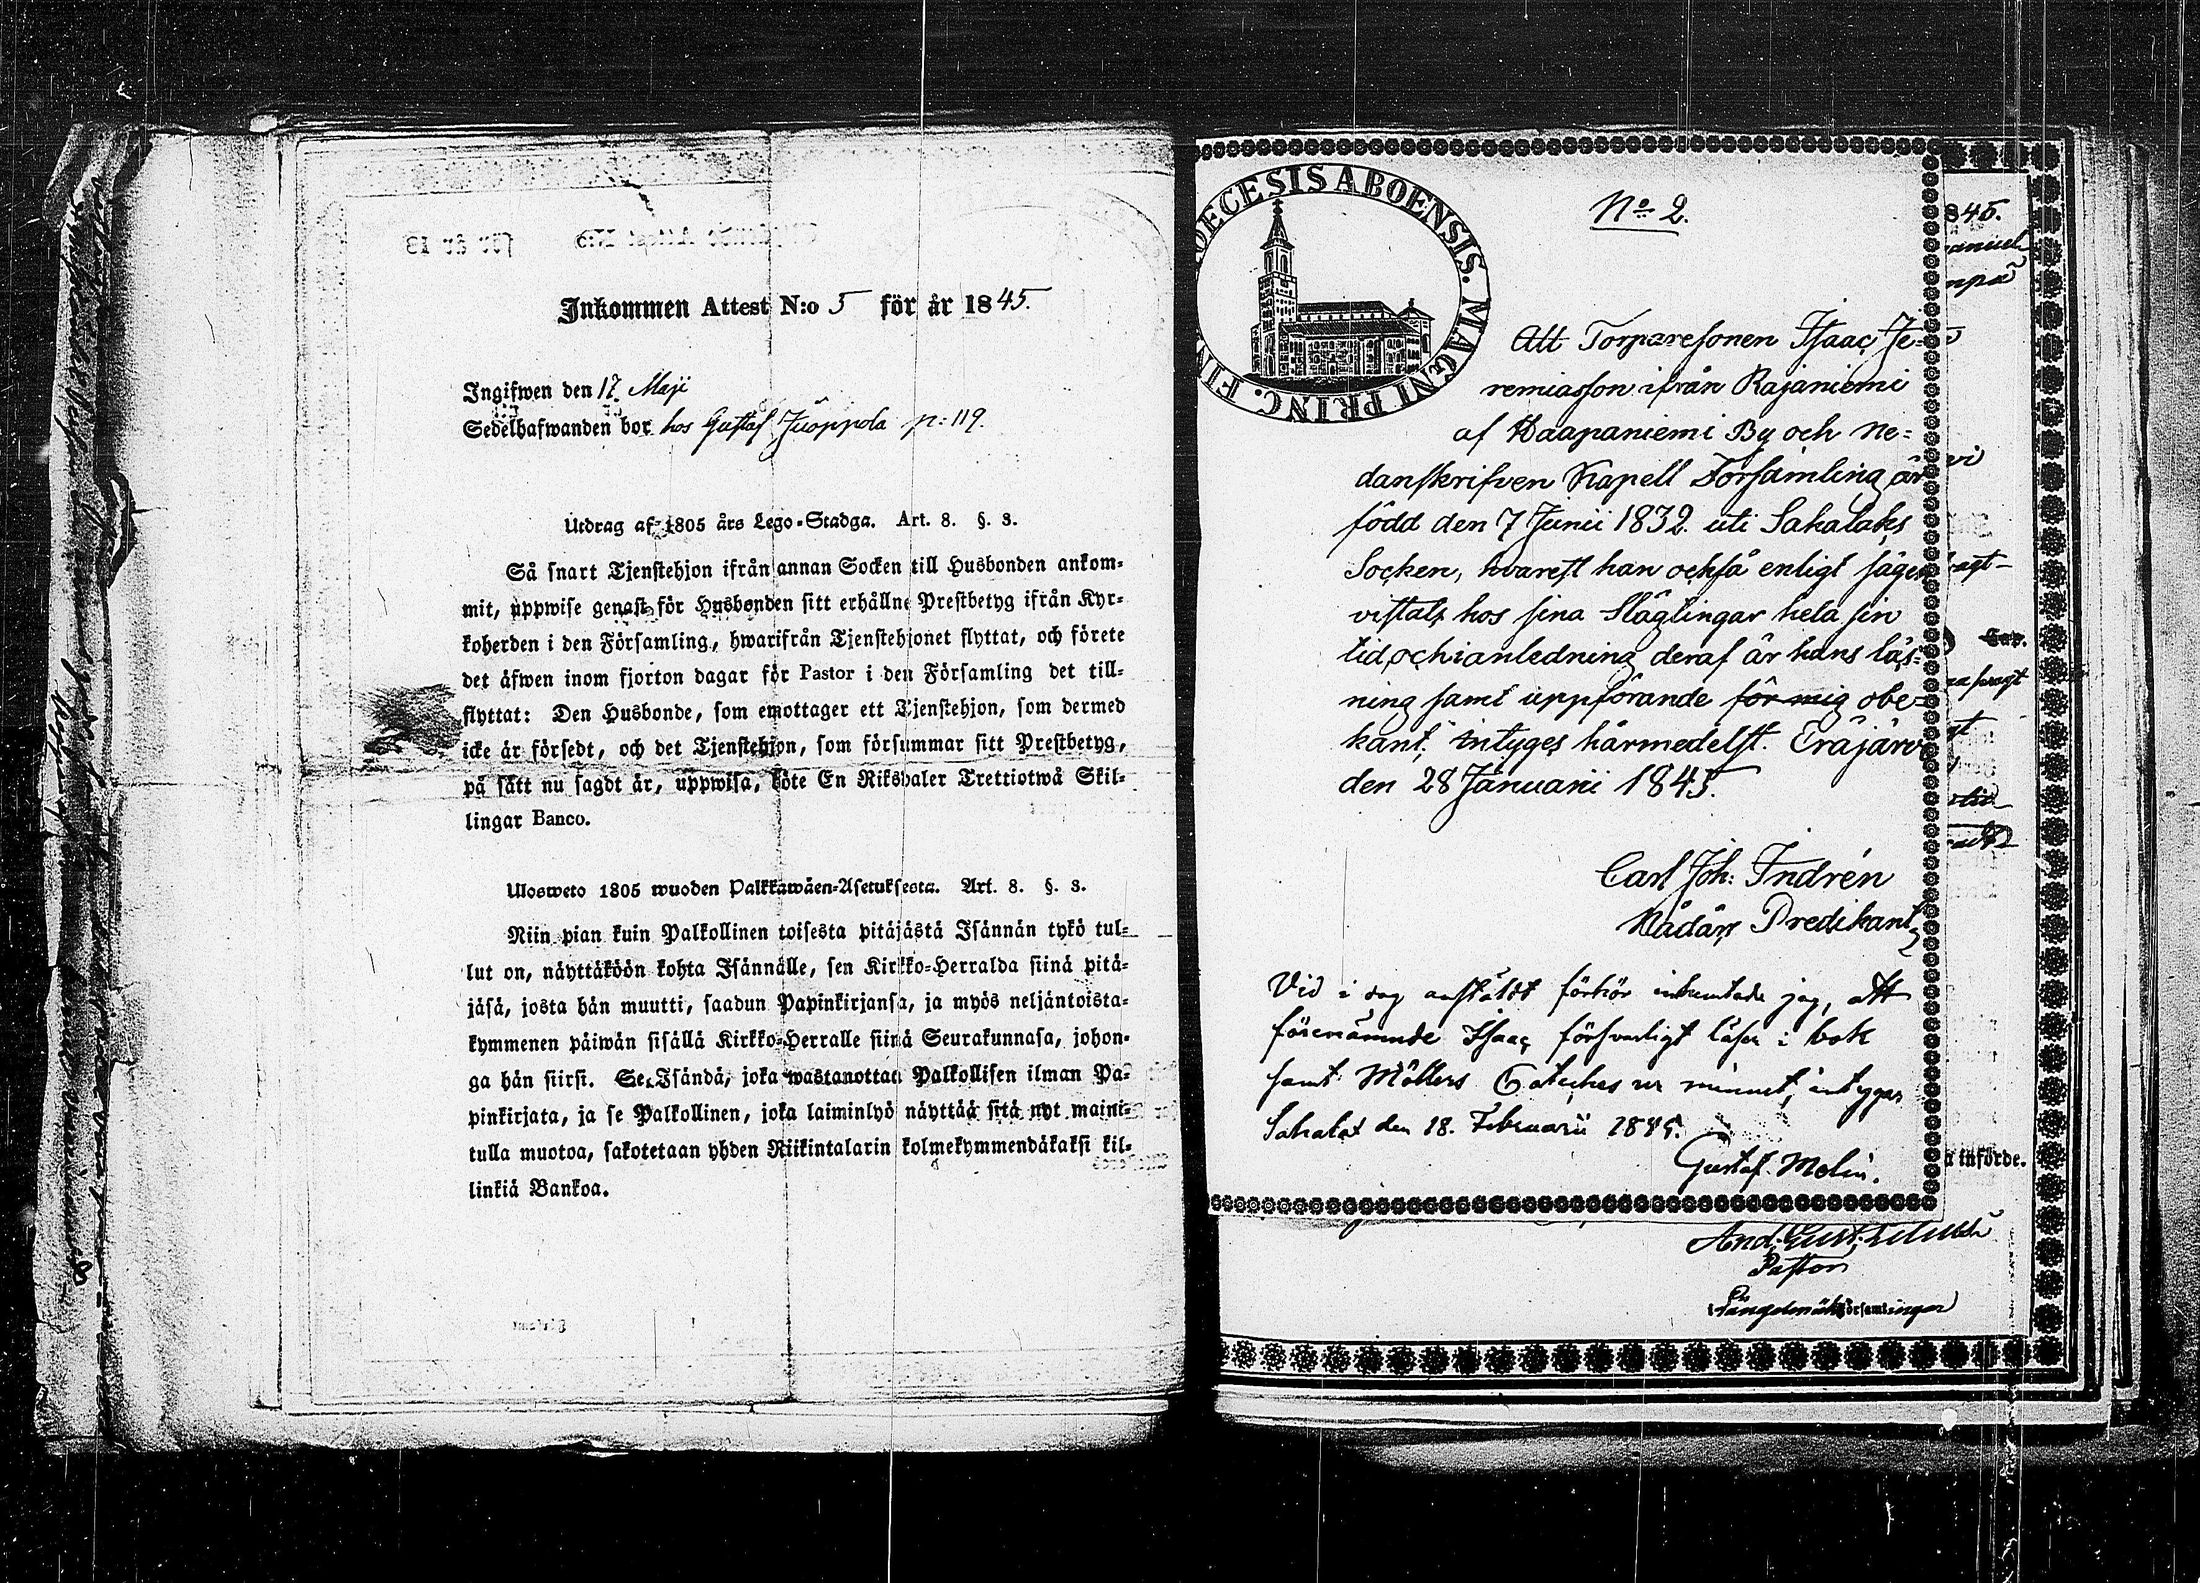 Inkommen Attest N:o 5 för år 1845.
Ingifwen den 17 Maji
Sedelhafwanden bor hos Gustaf Juoppola p: 119.
Utdrag af 1805 års Lego-Stadga. Art. 8. §. 3.
Så snart Tjenstehjon ifrån annan Socken till Husbonden ankom-
mit, uppwise genast för Husbonden sitt erhållne Prestbetyg ifrån Kyr-
koherden i den Församling, hwarifrån Tjenstehjonet flyttat, och förete
det äfwen inom fjorton dagar för Pastor i den Församling det till-
flyttat: Den Husbonde, som emottager ett Tjenstehjon, som dermed
icke är försedt, och det Tjenstehjon, som försummar sitt Prestbetyg,
på sätt nu sagdt är, uppwisa, böte En Riksdaler Trettiotwå Skil-
lingar Banco.
Ulosweto 1805 wuoden Palkkawäen-Asetuksesta. Art. 8. §. 3.
Niin pian kuin Palkollinen toisesta pitäjästä Isännän tykö tul-
lut on, näyttäköön kohta Isännälle, sen Kirkko-Herralda siinä pitä-
jäsä, josta hän muutti, saadun Papinkirjansa, ja myös neljäntoista-
kymmenen päiwän sisällä Kirkko-Herralle siinä Seurakunnasa, johon-
ga hän siirsi. Se Isändä, joka wastanottaa Palkollisen ilman Pa-
pinkirjata, ja se Palkollinen, joka laiminlyö näyttää sitä nyt maini-
tulla muotoa, sakotetaan yhden Riikintalarin kolmekymmendäkaksi kil-
linkiä Bankoa.
DIOECESIS ABOENSIS. MAGNI PRINC. FIN
No 2.
Att Torparesonen Isaac Je-
remiasson ifrån Rajaniemi
af Haapaniemi By och ne-
danskrifven Kapell Församling är
född den 7 Junii 1832 uti Sahalaks
Socken, hvarest han också enligt sägen
vistats hos sina Släglingar hela sin
tid, och i anledning deraf är hans läs-
ning samt uppförande för mig obe-
kant; intyges härmedelst. Eräjärvi
den 28 Januarii 1845.
Carl Joh: Indrén
Nådårs Predikant
Vid i dag anstäldt förhör inhemtade jag, att
förenämnde Isaac försvarligt läser i bok
samt Möllers Cateches ur minnet, intygar
Sahalax den 18. Februarii 1845.
Gustaf Molin.
845.
Cap.
införde.
And: Gust:
Pastor
i Längelmäki församlingar